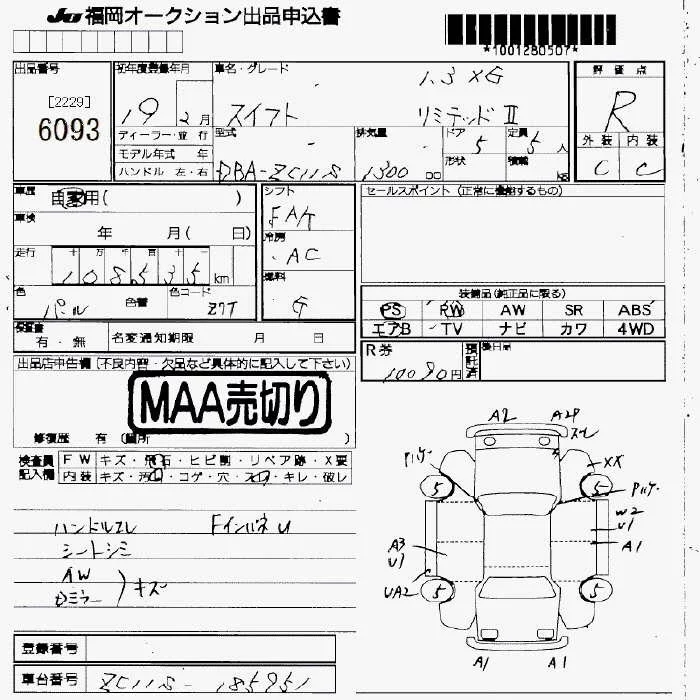 JU 福岡オークション出品申込書
*1001280507*
出品番号
[2229]
6093
初年度登録年月
19 2月
ディーラー・並 行
モデル年式 年
ハンドル 左・右
車名・グレード
1.3 XG
スイフト リミテッドⅡ
型式
DBA-ZC11S
排気量
1300 cc
ドア
5
形状
定員
5人
積載
kg
評 価 点
R
外 装 内 装
C C
車歴
自家用( )
車検
年 月( 日)
走行
十 万 千 百 十
108535km
色
パール 色替
色コード
Z7T
シフト
FAT
冷房
AC
燃料
G
セールスポイント (正常に機能するもの)
装備品(純正品に限る)
PS PW AW SR ABS
エアB TV ナビ カワ 4WD
検査書
有・無
名変通知期限 月 日
R券
10090円
預託済
後日品
出品店申告欄 (不良内容・欠品など具体的に記入して下さい)
MAA売切り
修復歴 有 (箇所 )
検査員記入欄
FW キズ・飛石・ヒビ割・リペア跡・X要
内装 キズ・汚れ・コゲ・穴・スレ・キレ・破レ
ハンドルスレ
シートシミ
AW
ドアミラー
キズ
A2
XX
5
5
W2
U1
A3
U1
A1
UA2
5
5
A1
A1
登録番号
車台番号
ZC11S-185951